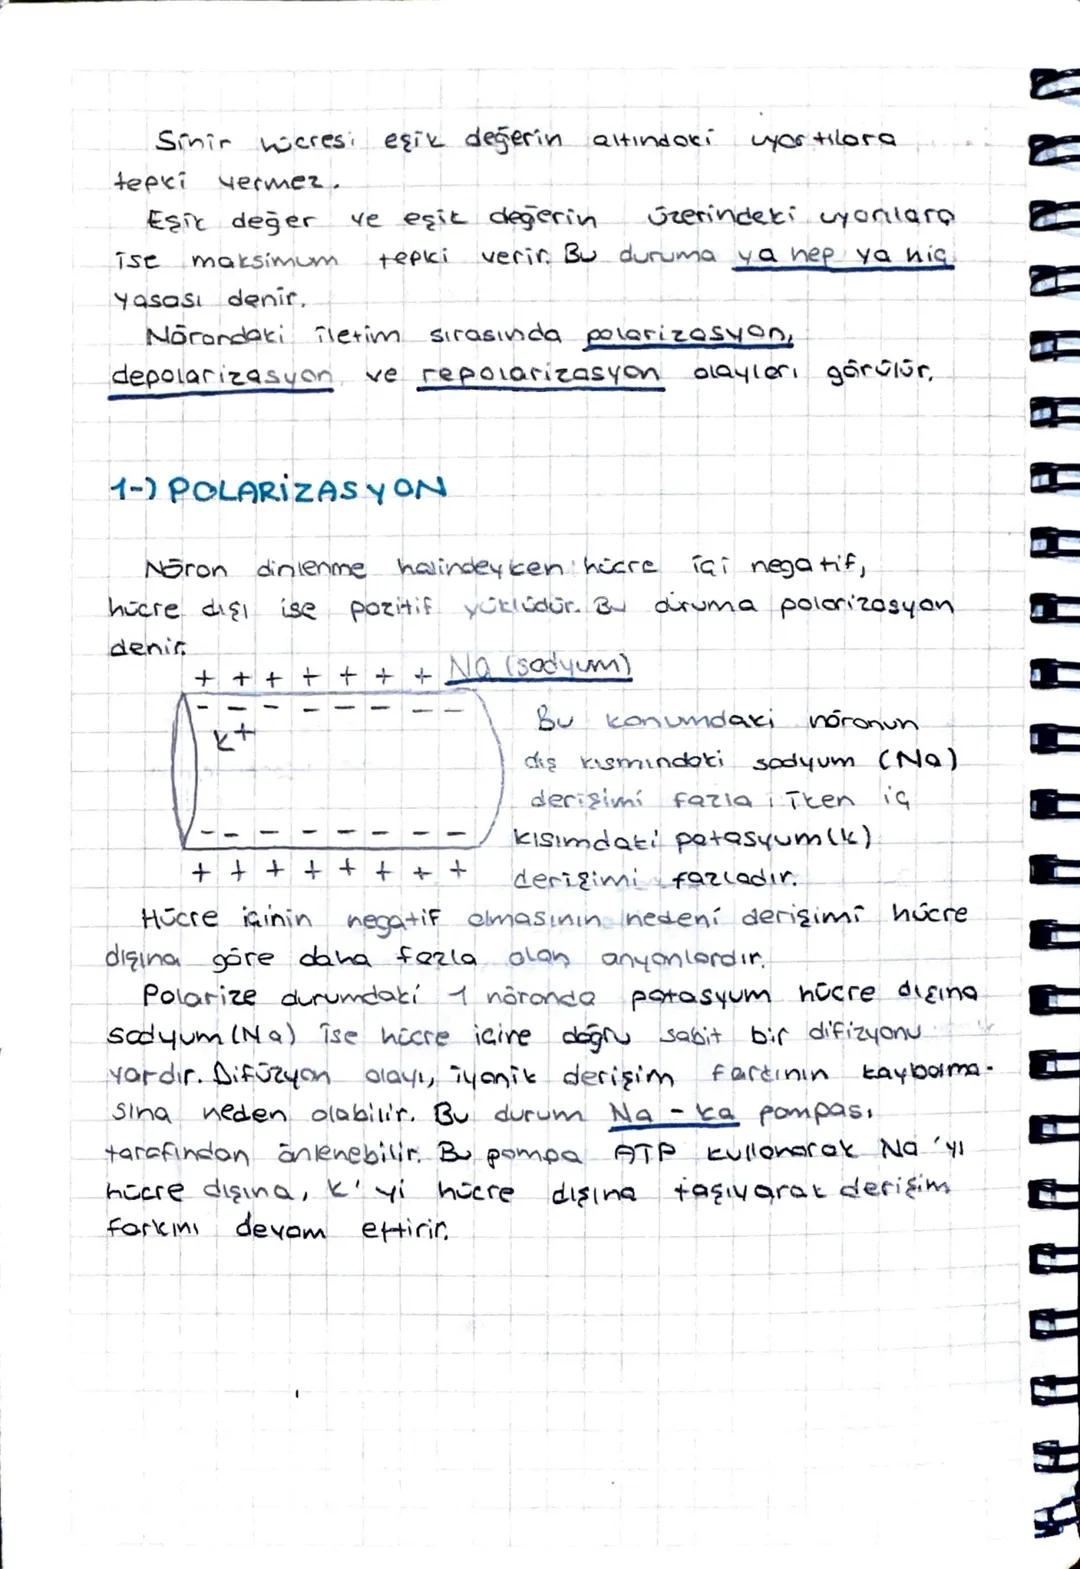 Sinir hücresi eşik değerin altındaki uyartılara
tepki vermez.
Eşik değer ve eşik değerin üzerindeki uyarılara
ise maksimum tepki verir. Bu duruma ya hep ya hiç
yasası denir.
Nörondaki iletim sırasında polarizasyon,
depolarizasyon ve repolarizasyon olayları görülür.
1-) POLARİZASYON
Nöron dinlenme halindeyken hücre içi negatif,
hücre dışı ise pozitif yüklüdür. Bu duruma polarizasyon
denir.
+ + + + + + + Na (sodyum)
- - - - - - - -
K+
Bu konumdaki nöronun
dış kısmındaki sodyum (Na)
derişimi fazla iken iç
kısımdaki potasyum (k)
- - - - - - - -
+ + + + + + + +
derişimi fazladır.
Hücre içinin negatif olmasının nedeni derişimi hücre
dışına göre daha fazla olan anyonlardır.
Polarize durumdaki 1 nöronda potasyum hücre dışına
sodyum (Na) ise hücre içine doğru sabit bir difizyonu
vardır. Difüzyon olayı, iyonik derişim farkının kaybolma-
sına neden olabilir. Bu durum Na - ka pompası
tarafından önlenebilir. Bu pompa ATP kullanarak Na 'yı
hücre dışına, K' yi hücre dışına taşıyarak derişim
farkını devam ettirir.